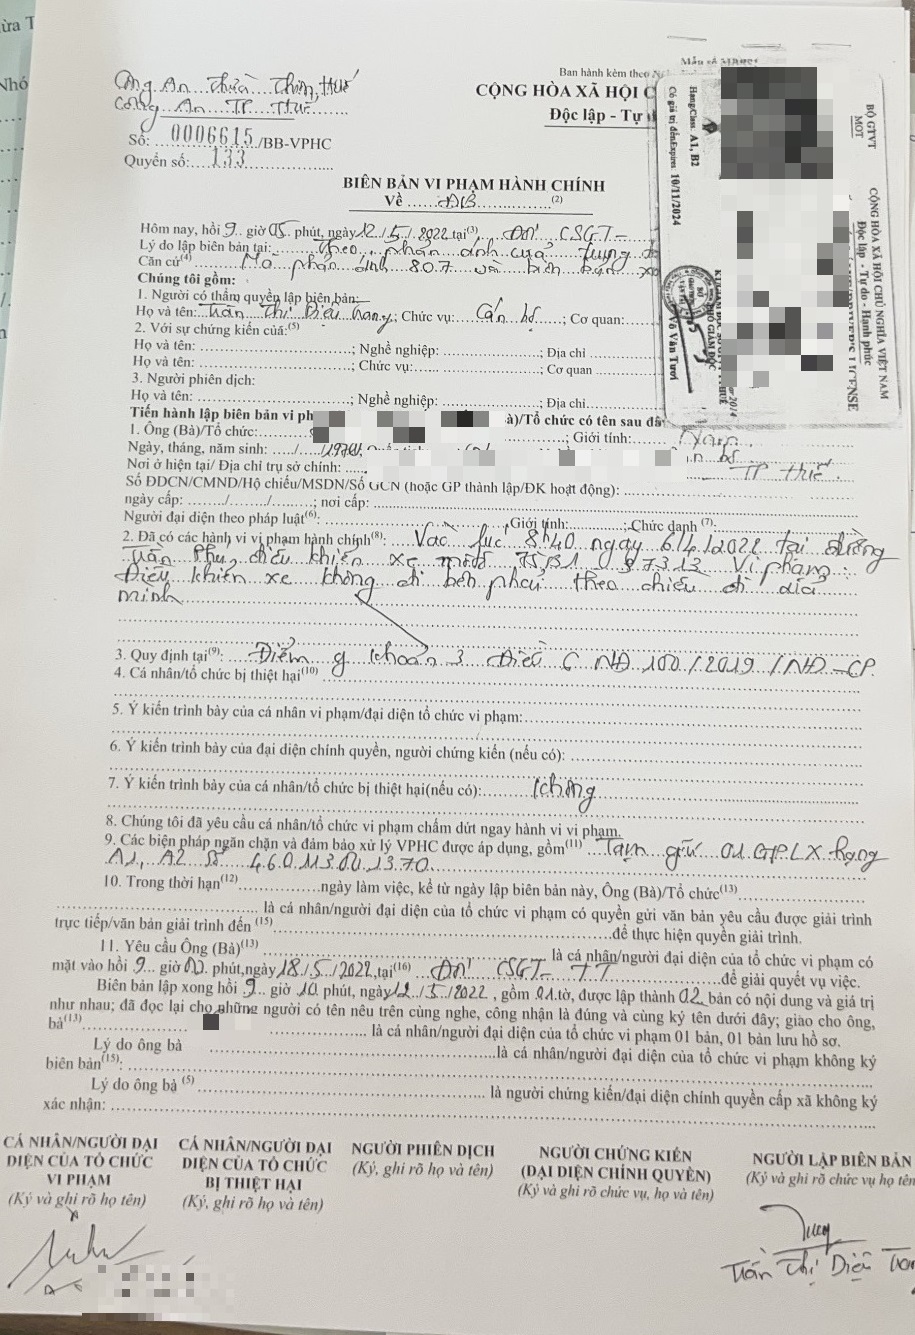 ừa T
Nhó
Mẫu
Ban hành kèm theo
Công An Thừa Thiên Huế
Công An TP Huế
CỘNG HÒA XÃ HỘI C
Độc lập - Tự
Số: 0006615/BB-VPHC
Quyển số: 133
BIÊN BẢN VI PHẠM HÀNH CHÍNH
Về ......ĐB..............(2)
Hôm nay, hồi 9 giờ 05 phút, ngày 12/5/2022 tại(3) Đội CSGT-
Lý do lập biên bản tại: Theo phản ánh của
Căn cứ(4) Mã phản ánh 807 và biên bản
Chúng tôi gồm:
1. Người có thẩm quyền lập biên bản:
Họ và tên: Trần Thị Diệu Trang; Chức vụ: Cán bộ; Cơ quan:
2. Với sự chứng kiến của:(5)
Họ và tên: ; Nghề nghiệp: ; Địa chỉ
Họ và tên: ; Chức vụ: ; Cơ quan
3. Người phiên dịch:
Họ và tên: ; Nghề nghiệp: ; Địa chỉ
Tiến hành lập biên bản vi ph à)/Tổ chức có tên sau đâ
1. Ông (Bà)/Tổ chức: ; Giới tính: Nam
Ngày, tháng, năm sinh: ..../..../
Nơi ở hiện tại/ Địa chỉ trụ sở chính: TP Huế
Số ĐDCN/CMND/Hộ chiếu/MSDN/Số GCN (hoặc GP thành lập/ĐK hoạt động):
ngày cấp: ....../....../......; nơi cấp:
Người đại diện theo pháp luật(6): Giới tính: ; Chức danh (7):
2. Đã có các hành vi vi phạm hành chính(8): Vào lúc 8h40 ngày 6/4/2022 tại đường
Trần Phú điều khiển xe môtô 75B1 vi phạm:
Điều khiển xe không đi bên phải theo chiều đi của
mình
3. Quy định tại(9): Điểm g khoản 3 Điều 6 NĐ 100/2019/NĐ-CP
4. Cá nhân/tổ chức bị thiệt hại(10)
5. Ý kiến trình bày của cá nhân vi phạm/đại diện tổ chức vi phạm:
6. Ý kiến trình bày của đại diện chính quyền, người chứng kiến (nếu có):
7. Ý kiến trình bày của cá nhân/tổ chức bị thiệt hại(nếu có): không
8. Chúng tôi đã yêu cầu cá nhân/tổ chức vi phạm chấm dứt ngay hành vi vi phạm.
9. Các biện pháp ngăn chặn và đảm bảo xử lý VPHC được áp dụng, gồm(11) Tạm giữ 01 GPLX hạng
A1, A2 số 460113001370
10. Trong thời hạn(12) ngày làm việc, kể từ ngày lập biên bản này, Ông (Bà)/Tổ chức(13)
là cá nhân/người đại diện của tổ chức vi phạm có quyền gửi văn bản yêu cầu được giải trình
trực tiếp/văn bản giải trình đến (15) để thực hiện quyền giải trình.
11. Yêu cầu Ông (Bà)(13) là cá nhân/người đại diện của tổ chức vi phạm có
mặt vào hồi 9 giờ 00 phút,ngày 18/5/2022,tại(16) Đội CSGT-TT để giải quyết vụ việc.
Biên bản lập xong hồi 9 giờ 10 phút, ngày 12/5/2022, gồm 01 tờ, được lập thành 02 bản có nội dung và giá trị
như nhau; đã đọc lại cho những người có tên nêu trên cùng nghe, công nhận là đúng và cùng ký tên dưới đây; giao cho ông,
bà(13) là cá nhân/người đại diện của tổ chức vi phạm 01 bản, 01 bản lưu hồ sơ.
Lý do ông bà là cá nhân/người đại diện của tổ chức vi phạm không ký
biên bản(15):
Lý do ông bà (5) là người chứng kiến/đại diện chính quyền cấp xã không ký
xác nhận:
CÁ NHÂN/NGƯỜI ĐẠI DIỆN CỦA TỔ CHỨC VI PHẠM
(Ký và ghi rõ họ tên)
CÁ NHÂN/NGƯỜI ĐẠI DIỆN CỦA TỔ CHỨC BỊ THIỆT HẠI
(Ký, ghi rõ họ tên)
NGƯỜI PHIÊN DỊCH
(Ký, ghi rõ họ và tên)
NGƯỜI CHỨNG KIẾN
(ĐẠI DIỆN CHÍNH QUYỀN)
(Ký và ghi rõ chức vụ, họ và tên)
NGƯỜI LẬP BIÊN BẢN
(Ký và ghi rõ chức vụ họ tên
Trần Thị Diệu Tran
BỘ GTVT
MOT
CỘNG HÒA XÃ HỘI CHỦ NGHĨA VIỆT NAM
Độc lập - Tự do - Hạnh phúc
LICENSE
Hạng/Class: A1, B2
Có giá trị đến/Expires 10/11/2024
PHÓ GIÁM ĐỐC
Võ Văn Tươi